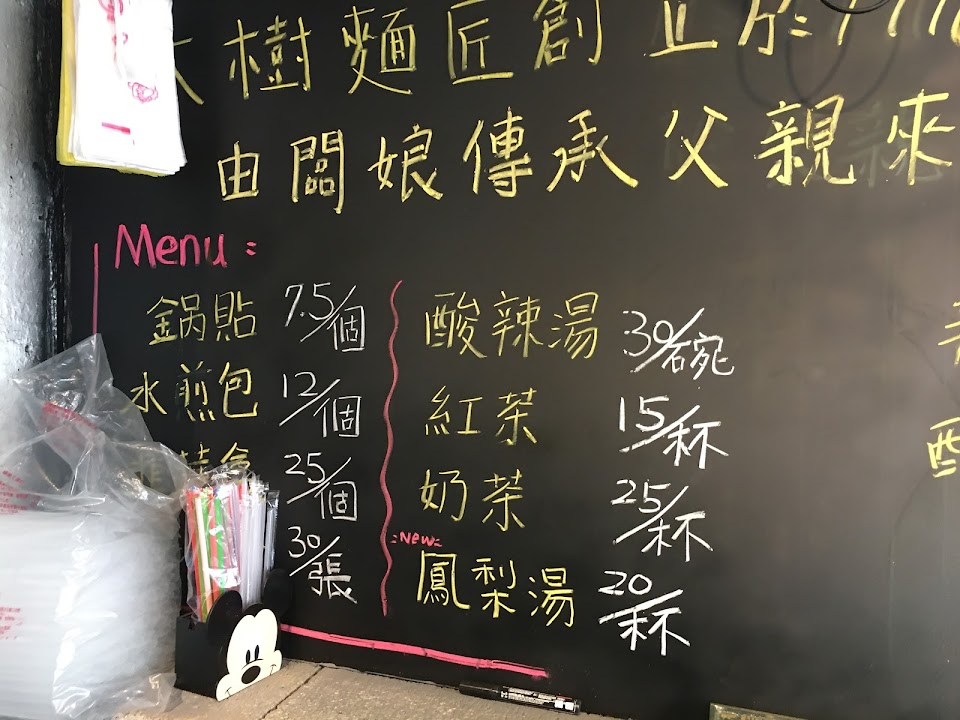 樹麵匠創立於
由闆娘傳承父親來
Menu:
鍋貼 7.5/個
水煎包 12/個
25/個
30/張
酸辣湯 30/碗
紅茶 15/杯
奶茶 25/杯
=New=
鳳梨湯 20/杯